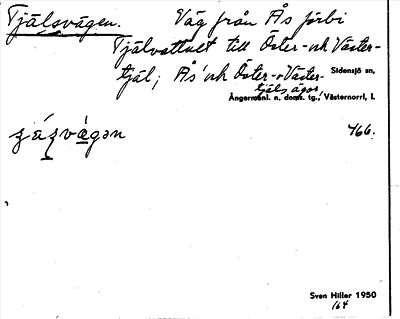 Tjälsvägen. Väg från Ås förbi
Tjälvattnet till Öster- och Väster-
tjäl; Ås' och Öster- o Väster-
tjäls ägor. Sidensjö sn,
Ångermanl. n. doms. tg., Västernorrl. l.
466.
Sven Hiller 1950
164